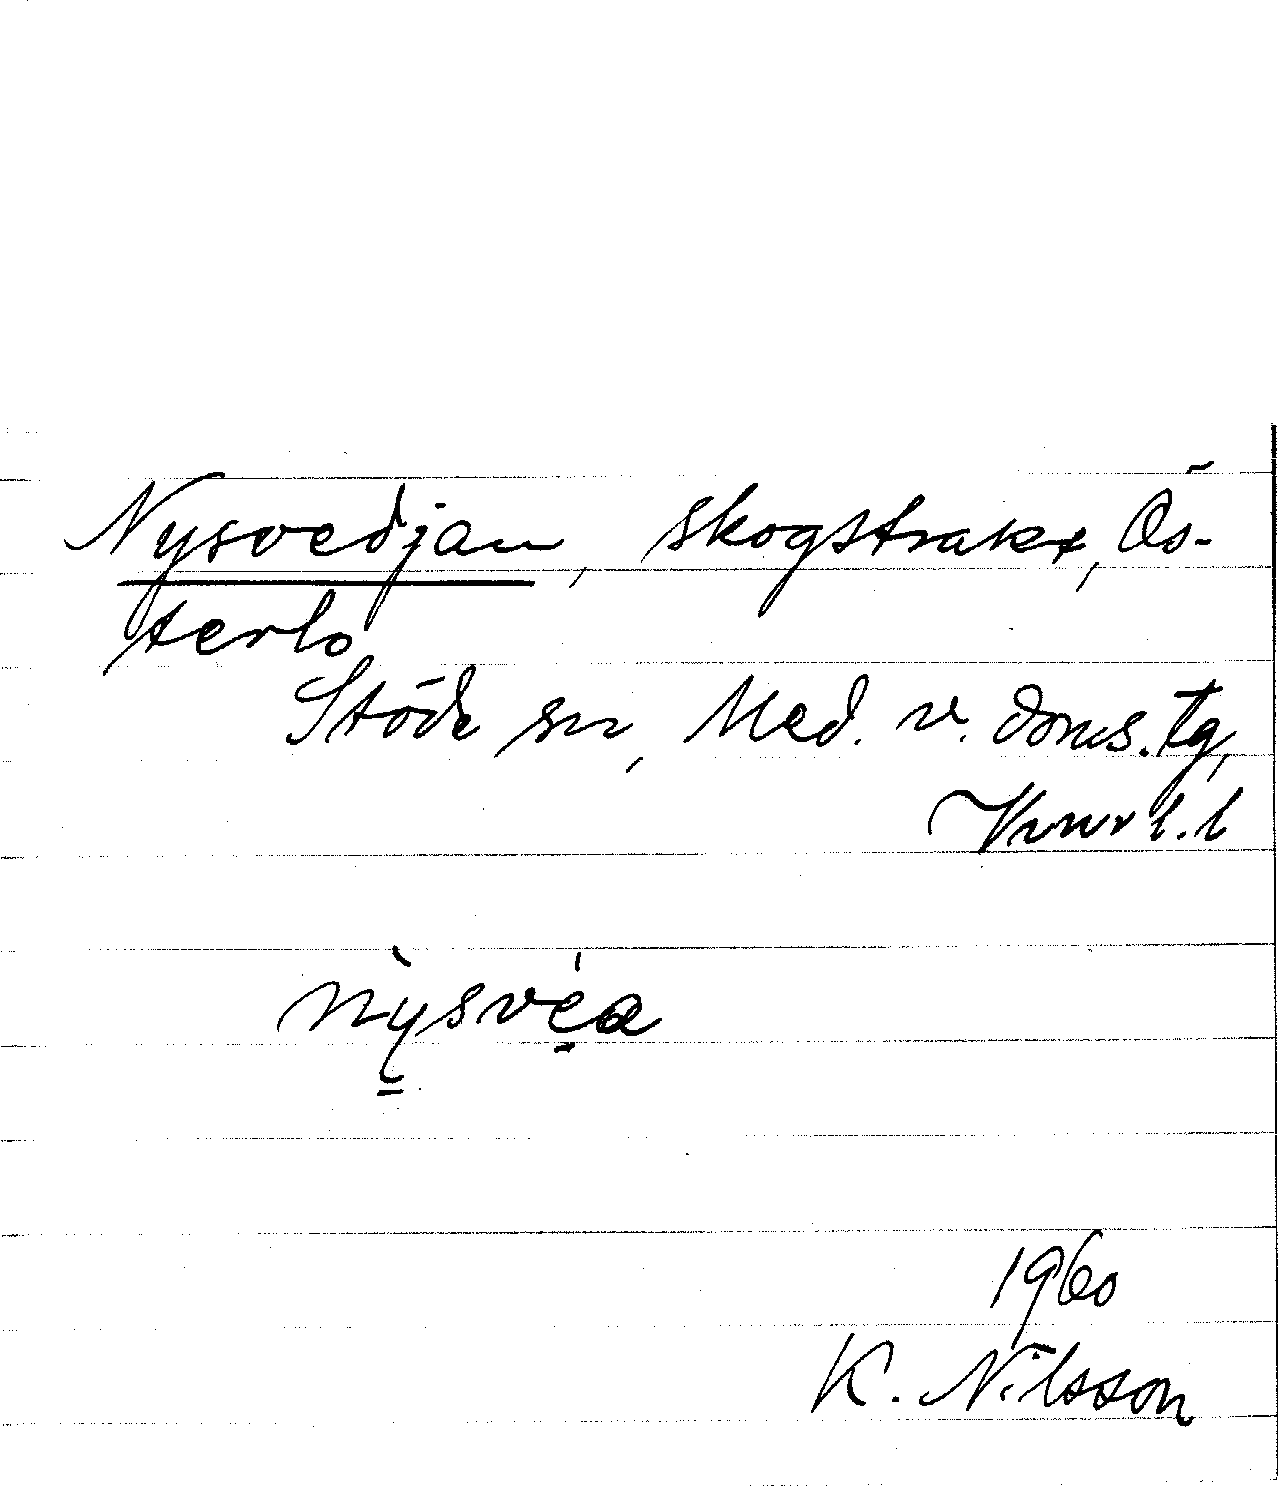 Nysvedjan, skogstrakt, Ös-
terlo
Stöde sn, Med. v. doms. tg,
Vnorl. l
nỳsvé̠a
1960
K. Nilsson